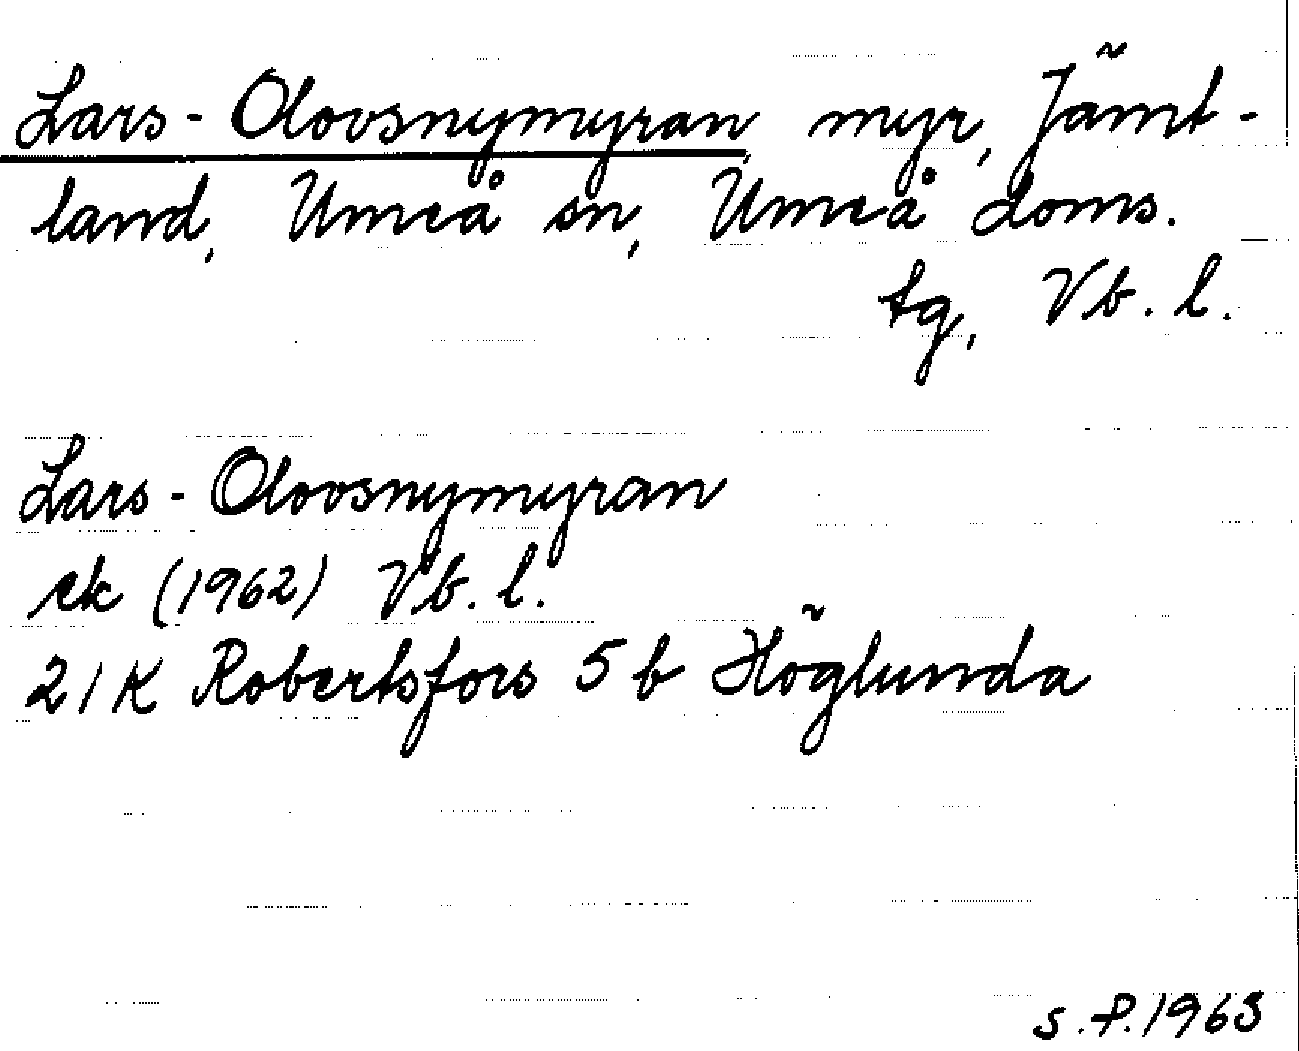 Lars-Olovsnymyran, myr, Jämt-
land, Umeå sn, Umeå doms.
tg, Vb. l.
Lars-Olovsnymyran
ek (1962) Vb. l.
21K Robertsfors 5 b Höglunda
S.P. 1963